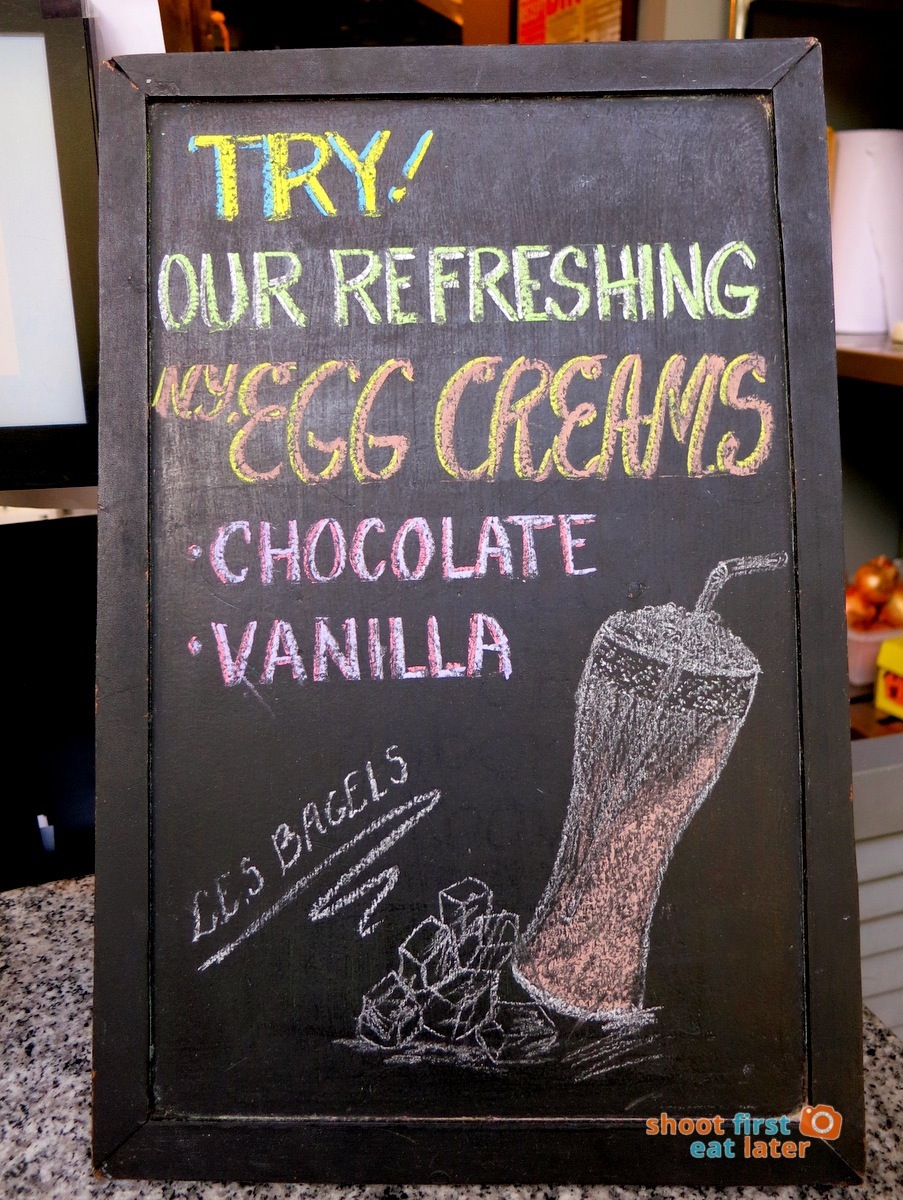 TRY!
OUR REFRESHING
N.Y. EGG CREAMS
• CHOCOLATE
• VANILLA
LES BAGELS
shoot first
eat later